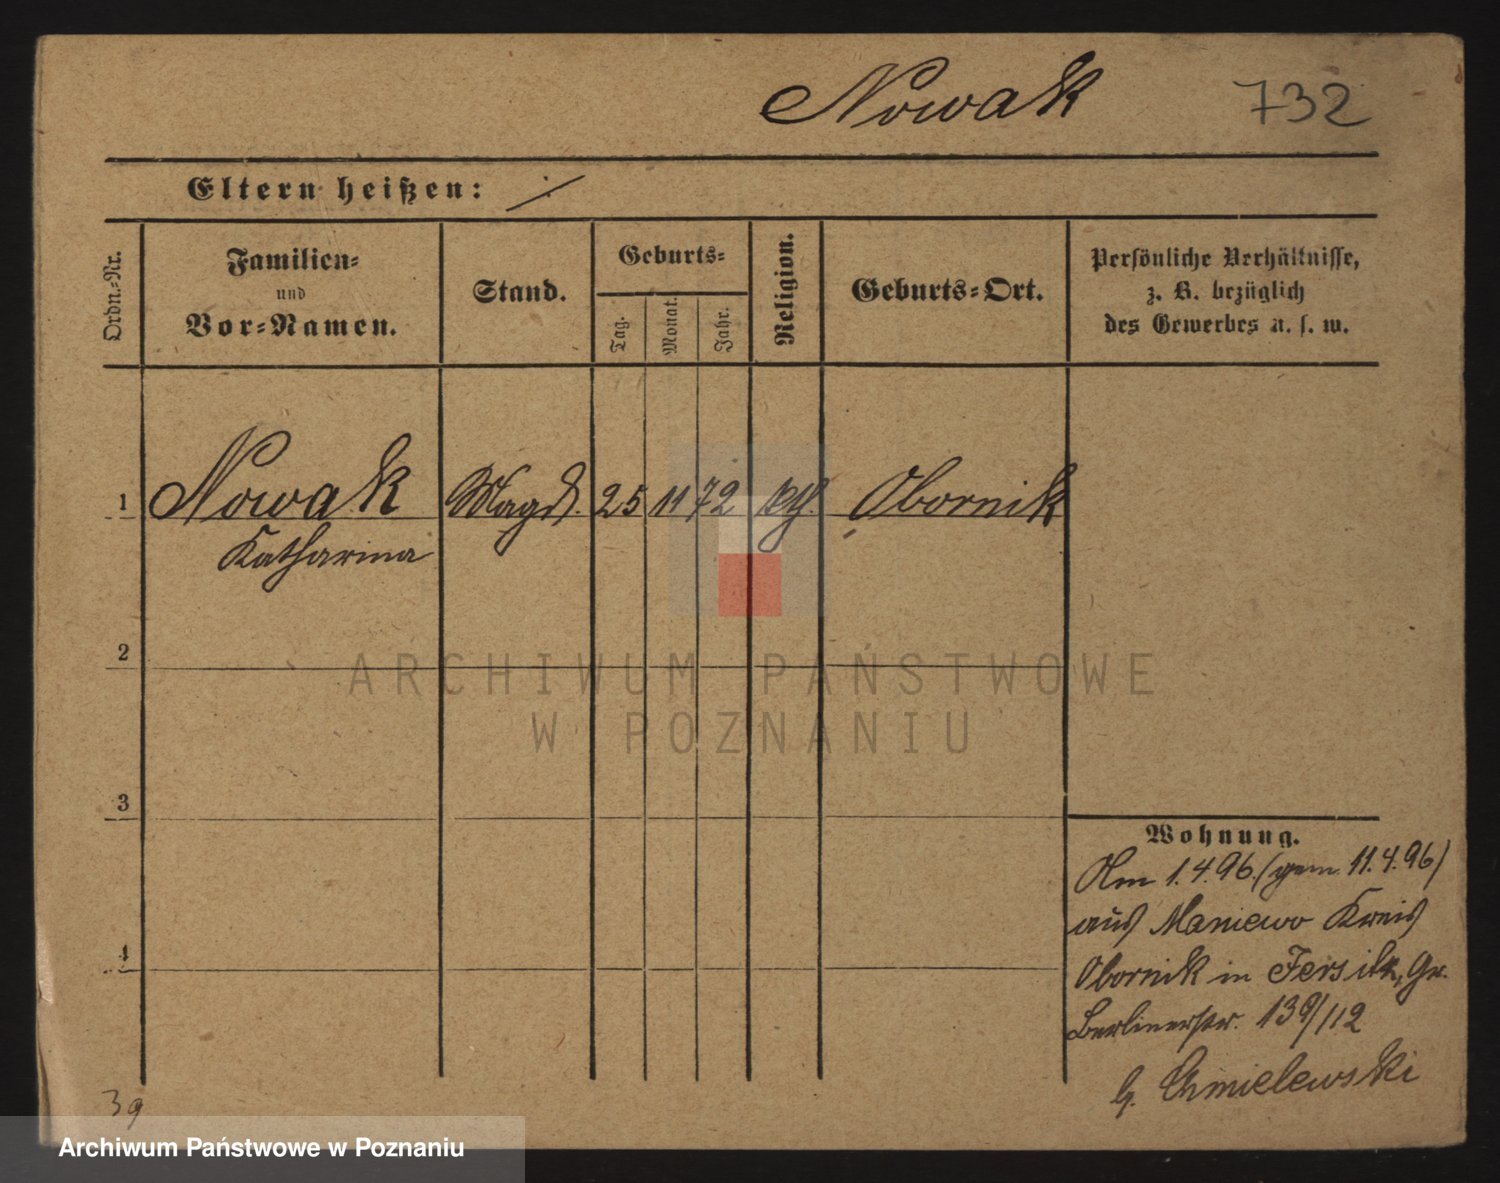 Nowak 732
Eltern heißen:
Ordn.-Nr.
Familien-
und
Vor-Namen.
Stand.
Geburts-
Tag.
Monat.
Jahr.
Religion.
Geburts-Ort.
Persönliche Verhältnisse,
z. B. bezüglich
des Gewerbes u. s. w.
1 Nowak Magd. 25 11 72 kth. Obornik
Katharina
2
3
4
Wohnung.
Am 1.4.96. (gem. 11.4.96)
aus Maniewo Kreis
Obornik in Jersitz, Gr.
Berlinerstr. 139/112
b. Chmielewski
39
ARCHIWUM PAŃSTWOWE
W POZNANIU
Archiwum Państwowe w Poznaniu